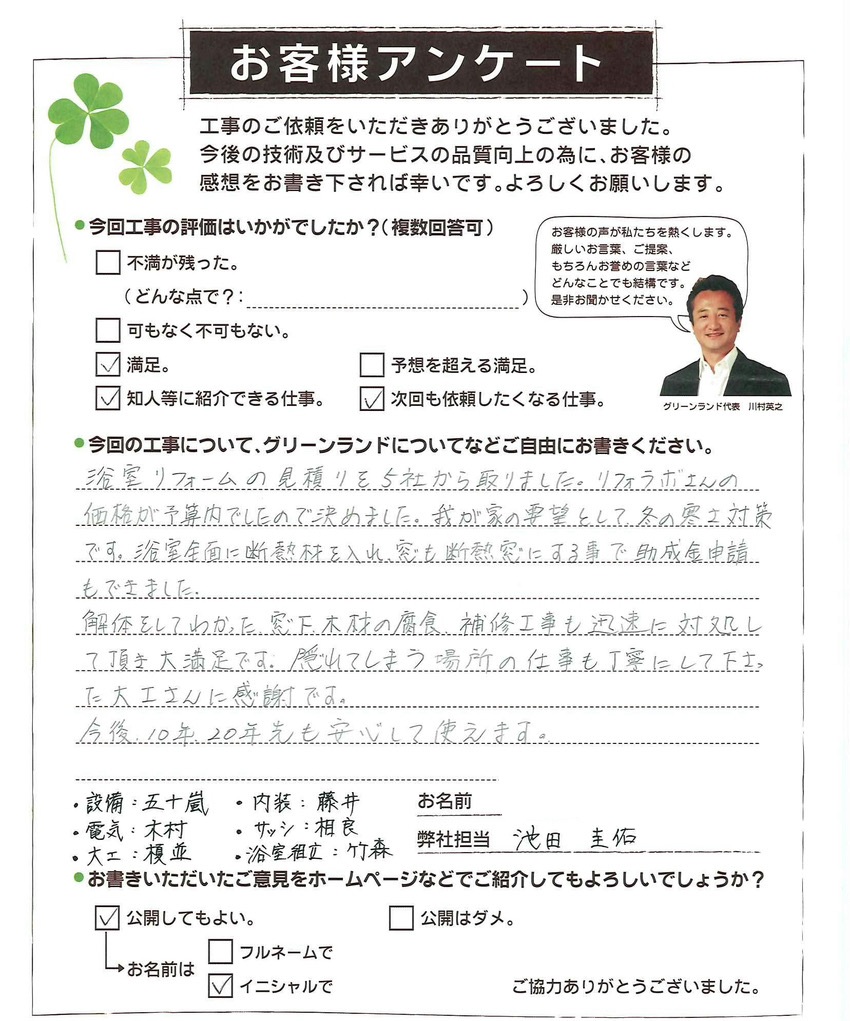 お客様アンケート
工事のご依頼をいただきありがとうございました。
今後の技術及びサービスの品質向上の為に、お客様の
感想をお書き下されば幸いです。よろしくお願いします。
●今回工事の評価はいかがでしたか？（複数回答可）
不満が残った。
（どんな点で？：　）
可もなく不可もない。
満足。
予想を超える満足。
知人等に紹介できる仕事。
次回も依頼したくなる仕事。
お客様の声が私たちを熱くします。
厳しいお言葉、ご提案、
もちろんお誉めの言葉など
どんなことでも結構です。
是非お聞かせください。
グリーンランド代表　川村英之
●今回の工事について、グリーンランドについてなどご自由にお書きください。
浴室リフォームの見積りを5社から取りました。リフォラボさんの
価格が予算内でしたので決めました。我が家の要望として、冬の寒さ対策
です。浴室全面に断熱材を入れ、窓も断熱窓にする事で助成金申請
もできました。
解体をしてわかった、窓下、木材の腐食、補修工事も迅速に対処し
て頂き大満足です。隠れてしまう場所の仕事も丁寧にして下さっ
た大工さんに感謝です。
今後、10年、20年先も安心して使えます。
・設備：五十嵐
・内装：藤井
・電気：木村
・サッシ：相良
・大工：榎並
・浴室組立：竹森
お名前
弊社担当　池田　圭佑
●お書きいただいたご意見をホームページなどでご紹介してもよろしいでしょうか？
公開してもよい。
公開はダメ。
お名前は
フルネームで
イニシャルで
ご協力ありがとうございました。